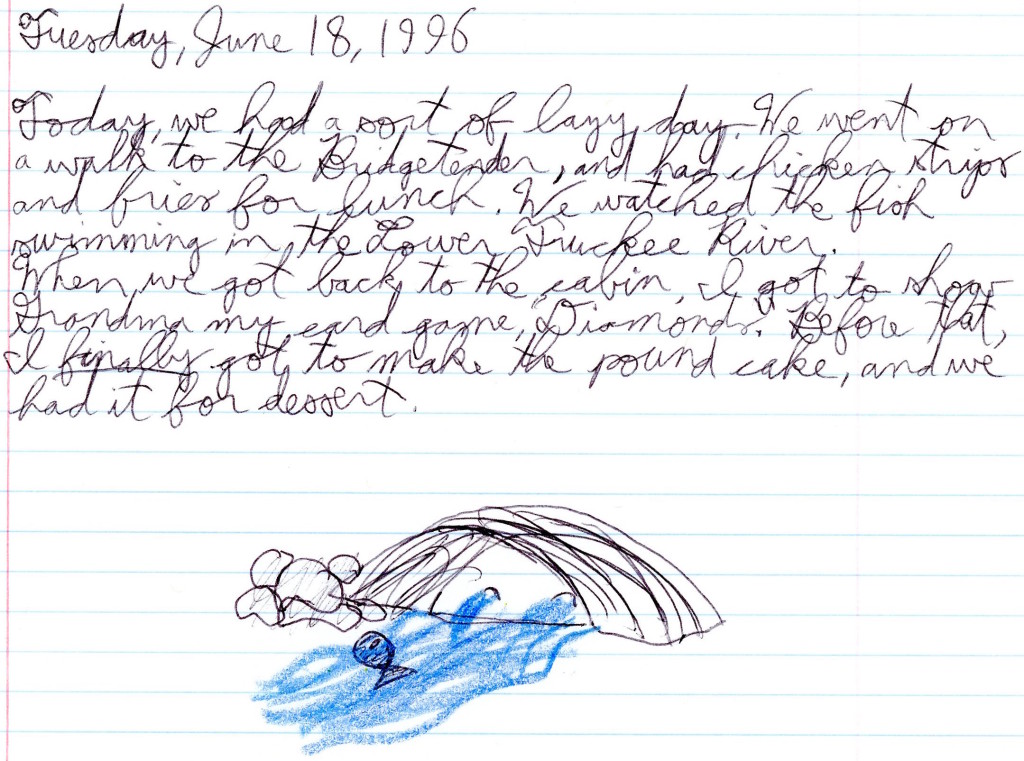 Tuesday, June 18, 1996
Today, we had a sort of lazy day. We went on
a walk to the Bridgetender, and had chicken strips
and fries for lunch. We watched the fish
swimming in the Lower Truckee River.
When we got back to the cabin, I got to show
Grandma my card game, "Diamonds." Before that,
I finally got to make the pound cake, and we
had it for dessert.